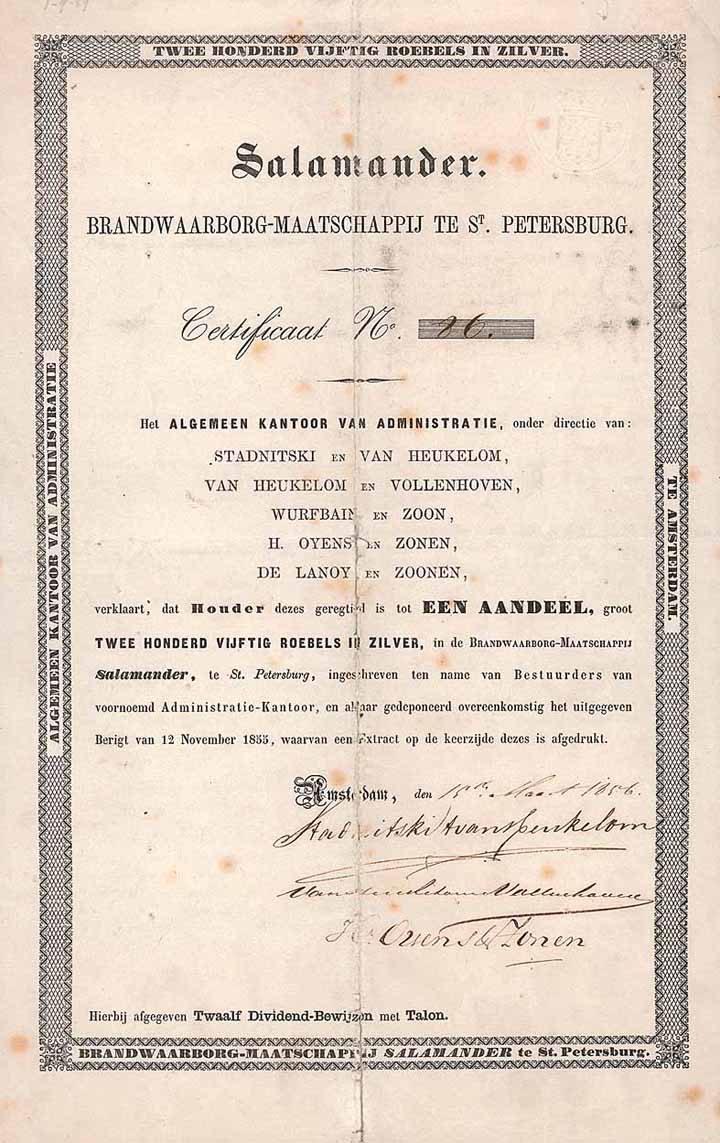 TWEE HONDERD VIJFTIG ROEBELS IN ZILVER.
Salamander.
BRANDWAARBORG-MAATSCHAPPIJ TE ST. PETERSBURG.
Certificaat No. 26.
Het ALGEMEEN KANTOOR VAN ADMINISTRATIE, onder directie van:
STADNITSKI EN VAN HEUKELOM,
VAN HEUKELOM EN VOLLENHOVEN,
WURFBAIN EN ZOON,
H. OYENS EN ZONEN,
DE LANOY EN ZOONEN,
verklaart, dat Houder dezes geregtigd is tot EEN AANDEEL, groot
TWEE HONDERD VIJFTIG ROEBELS IN ZILVER, in de BRANDWAARBORG-MAATSCHAPPIJ
Salamander, te St. Petersburg, ingeschreven ten name van Bestuurders van
voornoemd Administratie-Kantoor, en aldaar gedeponeerd overeenkomstig het uitgegeven
Berigt van 12 November 1855, waarvan een Extract op de keerzijde dezes is afgedrukt.
Amsterdam, den 15den Maart 1856.
Stadnitski & van Heukelom
van Heukelom & Vollenhoven
H. Oyens & Zonen
Hierbij afgegeven Twaalf Dividend-Bewijzen met Talon.
BRANDWAARBORG-MAATSCHAPPIJ SALAMANDER te St. Petersburg.
ALGEMEEN KANTOOR VAN ADMINISTRATIE
TE AMSTERDAM.